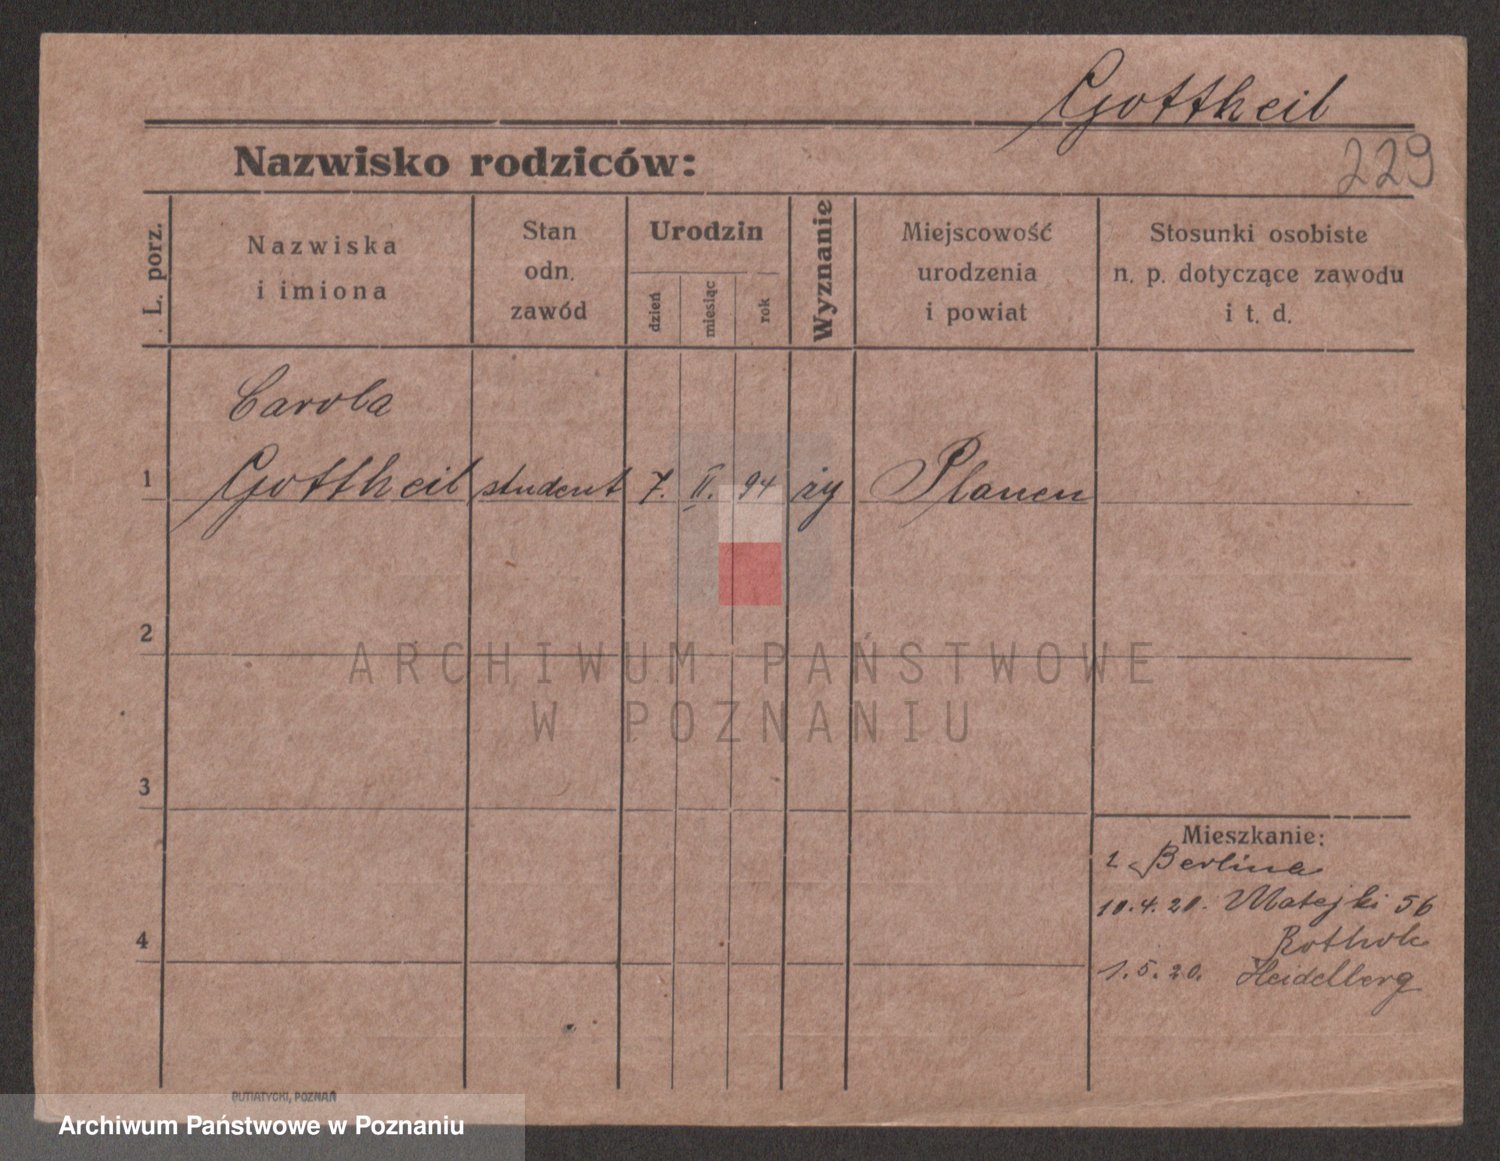 Gottheil
229
Nazwisko rodziców:
L. porz.
Nazwiska
i imiona
Stan
odn.
zawód
Urodzin
dzień
miesiąc
rok
Wyznanie
Miejscowość
urodzenia
i powiat
Stosunki osobiste
n. p. dotyczące zawodu
i t. d.
Carola
1 Gottheil student 7. II. 94 Planen
2
ARCHIWUM PAŃSTWOWE
W POZNANIU
3
Mieszkanie:
z Berlina
10.4.20. Matejki 56
4
1.5.20. Heidelberg
PUTIATYCKI, POZNAŃ
Archiwum Państwowe w Poznaniu